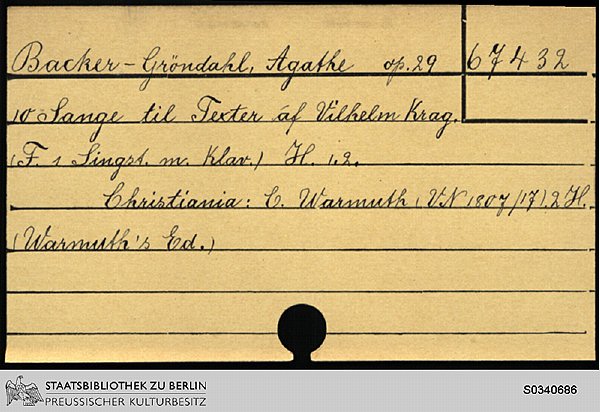 Backer-Gröndahl, Agathe op. 29 67432
10 Sange til Texter af Vilhelm Krag.
(F. 1 Singst. m. Klav.) H. 1.2.
Christiania: C. Warmuth (VN 1807/17). 2 H.
(Warmuth's Ed.)
STAATSBIBLIOTHEK ZU BERLIN
PREUSSISCHER KULTURBESITZ
S0340686